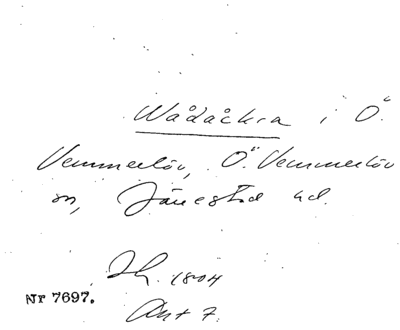 Wådåckra i Ö.
Vemmerlöv, Ö. Vemmerlöv
sn, Järrestad hd.
Sk. 1804
Nr 7697.
Akt 7.